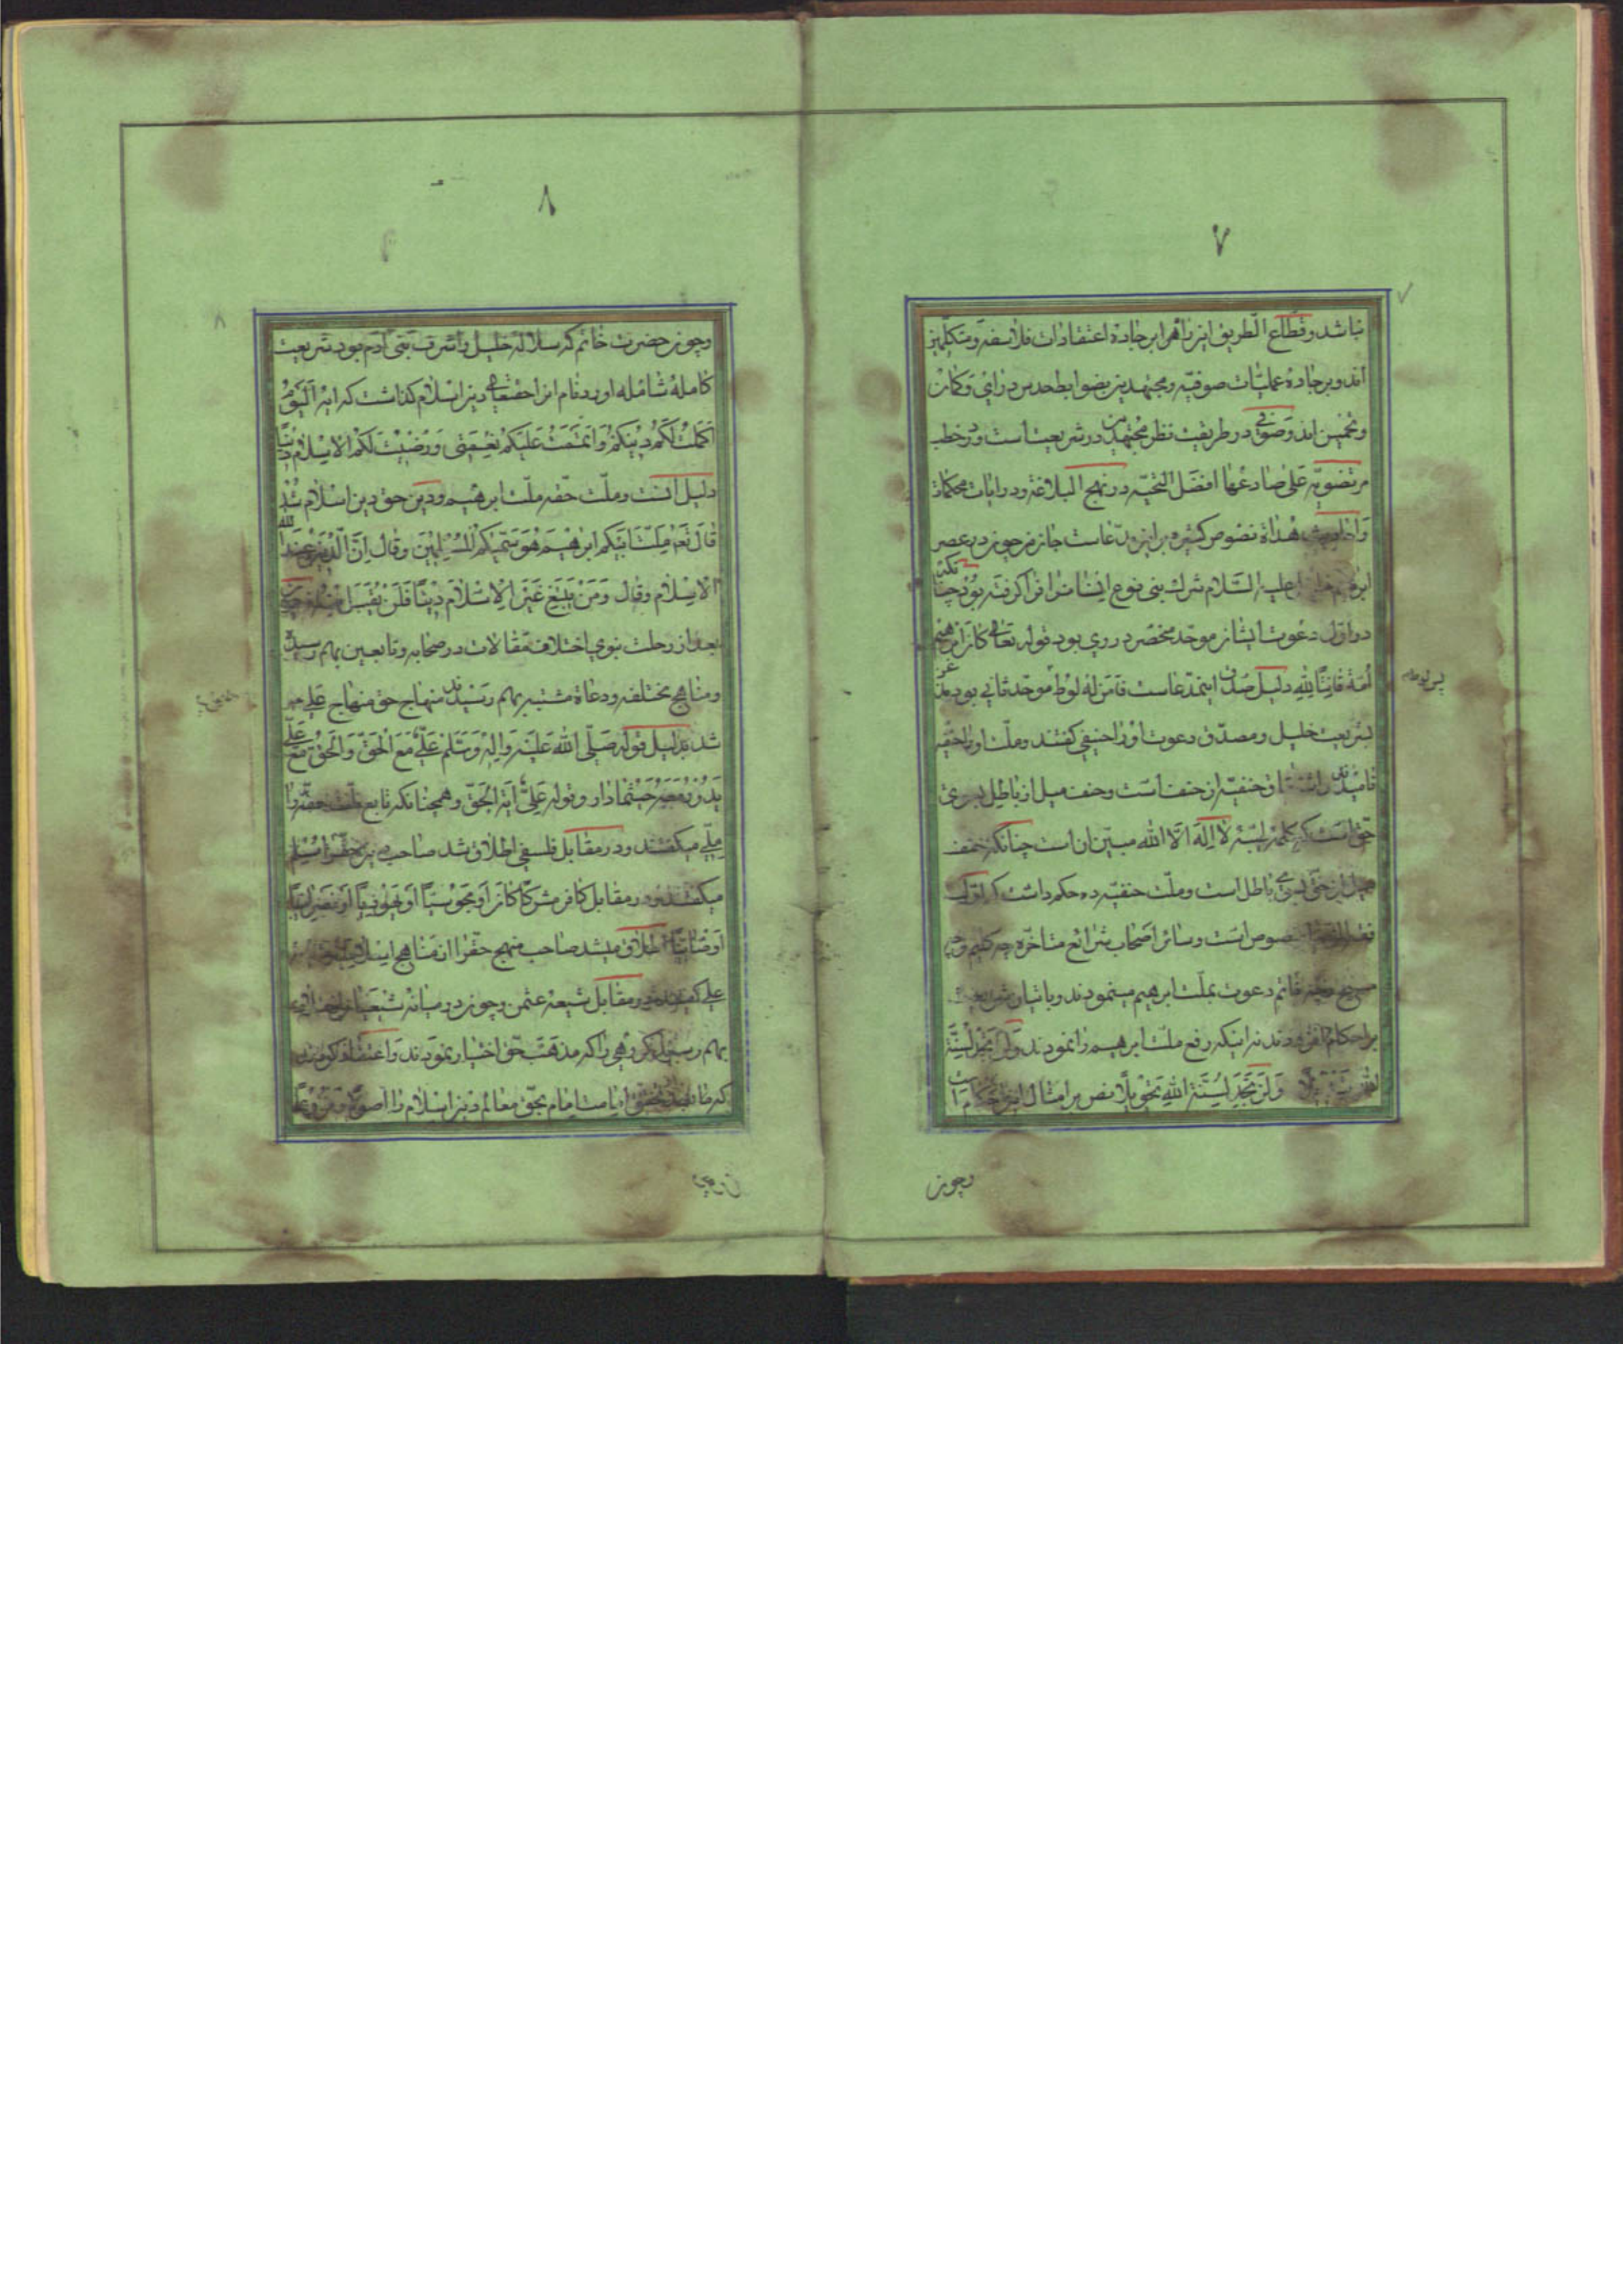 ۷
نباشد و قطّاع الطریق این راه را بر جاده اعتقادات فلاسفه و متکلّمین
اند و بر جاده عملیّات صوفیّه و مجتهدین بضوابط حدس و رای و کمان
و تخمین اند و صوفی در طریقت نظر مجتهدین در شریعت است و در خطب
مرتضویّه علی صادعها افضل التحیّه در نهج البلاغة و در ایات محکمات
و احادیث هداة نصوص کثیره بر این مدّعاست
ابرهیم علیه السّلام شرک بنی نوع انسانرا فرا گرفته بود چنا
در اوّل دعوت ایشان موحّد منحصر در وی بود قوله تعالی کان ابرهیم
أمّة قانتاً لله دلیل صدق اینمدّعاست فامن له لوط موحّد ثانی بود
بشریعت خلیل و مصدّق دعوت او را حنیفی گفتند و ملّت او را حنفیّه
نامیدند و حنفیّه از حنف است و حنف میل از باطل بسوی
حقّ است که کلمه طیّبه لا اله الّا الله مبیّن ان است چنانکه جنف
میل از حقّ بسوی باطل است و ملّت حنفیّه ده حکم داشت که
منصوص است و سائر اصحاب شرائع متاخّره چه کلیم و چه
مسیح و چه خاتم دعوت بملّت ابرهیم مینمودند و باتیان شریعت
بر احکام افزودند نه اینکه رفع ملّت ابرهیم را نمودند و لن تجد لسنّة
الله تبدیلا و لن تجد لسنة الله تحویلاً نص بر امثال این احکام است
وچون
۸
وچون حضرت خاتم که سلاله خلیل و اشرف بنی ادم بود شریعت
کامله شامله اورد و نام انرا حقتعالی دین اسلام گذاشت که ایه الیوم
اکملت لکم دینکم و اتممت علیکم نعمتی و رضیت لکم الاسلام دیناً
دلیل انست و ملّت حقّه ملّت ابرهیم و دین حق دین اسلام شد
قال تعه ملّة ابیکم ابرهیم هو سمّیکم المسلمین و قال انّ الدّین عند الله
الاسلام و قال و من یبتغ غیر الاسلام دیناً فلن یقبل منه
بعد از رحلت نبوی اختلاف مقالات در صحابه و تابعین بهم رسید
و مناهج مختلفه و دعاة مشتبه بهم رسیدند منهاج حق منهاج علی
شد بدلیل قوله صلّی الله علیه و اله و سلّم علیّ مع الحقّ و الحقّ مع علیّ
یدور معه حیثما دار و قوله علیّ ایة الحقّ و همچنانکه تابع ملّت حقّه را
ملّی میگفتند و در مقابل فلسفی اطلاق شد صاحب دین حقّرا مسلم
میگفتند و در مقابل کافر مشرکاً کان او مجوسیّاً او یهودیّاً او نصرانیّاً
او صابئیّاً اطلاق میشد صاحب منهج حقّرا از مناهج اسلامیّه
علی گفتند در مقابل شیعه عثمن و چون در میانه شیعیان
بهم رسید گروهی را که مذهب حقّ اختیار نمودند و اعتقاد کردند
که امام بحقّ معالم دین اسلام را اصولاً و فروعاً